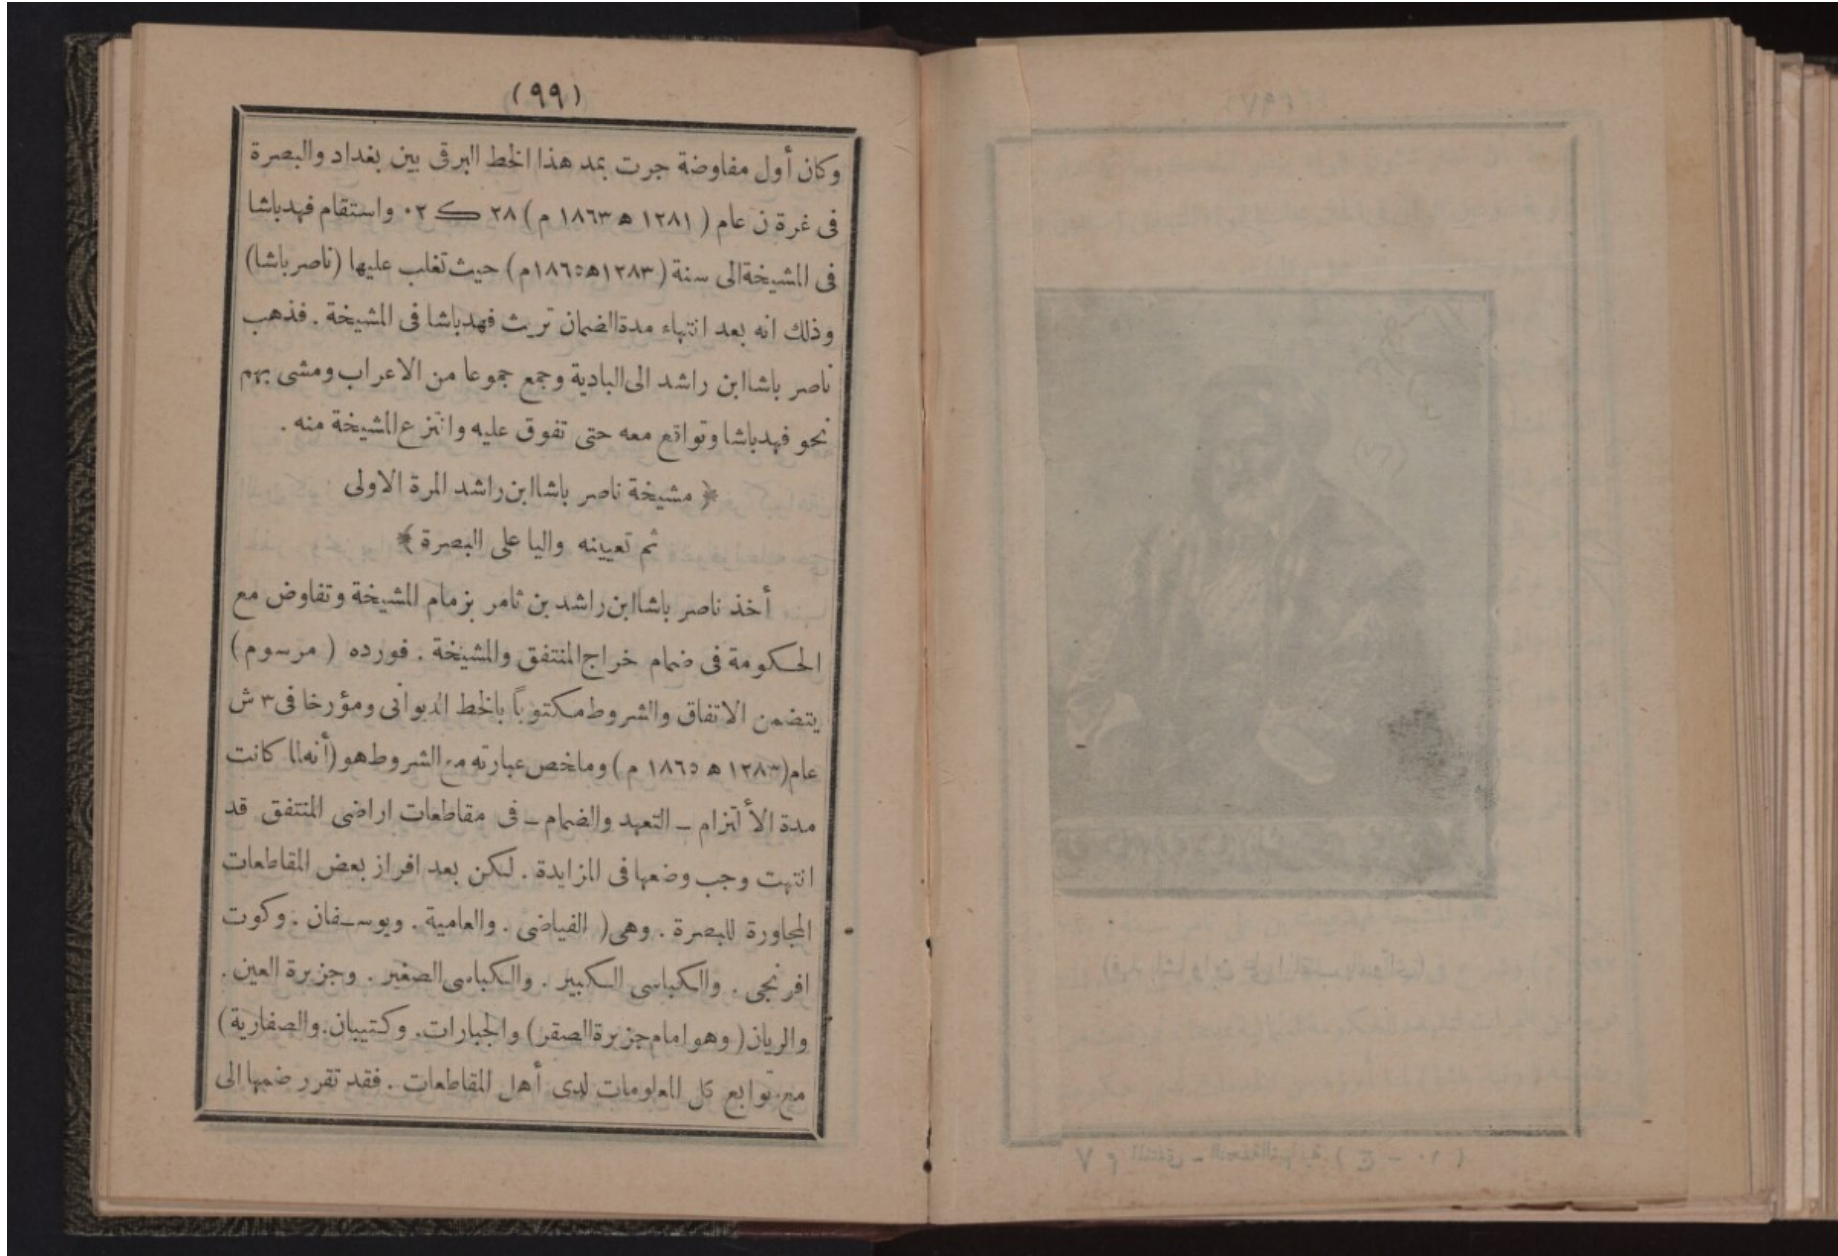 (٩٩)
وكان أول مفاوضة جرت بمد هذا الخط البرقى بين بغداد والبصرة
فى غرة ن عام ( ١٢٨١ ھ ١٨٦٣ م ) ٢٨ ك ٠٢ واستقام فهدباشا
فى المشيخة الى سنة ( ١٢٨٣ھ١٨٦٥م ) حيث تغلب عليها (ناصر باشا)
وذلك انه بعد انتهاء مدة الضمان تريث فهدباشا فى المشيخة . فذهب
ناصر باشا ابن راشد الى البادية وجمع جموعا من الاعراب ومشى بهم
نحو فهدباشا وتواقع معه حتى تفوق عليه وانتزع المشيخة منه .
﴿ مشيخة ناصر باشا ابن راشد المرة الاولى
ثم تعيينه واليا على البصرة ﴾
أخذ ناصر باشا ابن راشد بن ثامر بزمام المشيخة وتفاوض مع
الحكومة فى ضمام خراج المنتفق والمشيخة . فورده ( مرسوم )
يتضمن الاتفاق والشروط مكتوباً بالخط الديوانى ومؤرخا فى ٣ ش
عام (١٢٨٣ ھ ١٨٦٥ م ) وملخص عبارته مع الشروط هو (أنه لما كانت
مدة الألتزام ــ التعهد والضمام ــ فى مقاطعات اراضى المنتفق قد
انتهت وجب وضعها فى المزايدة . لكن بعد افراز بعض المقاطعات
المجاورة للبصرة . وهى ( الفياضى . والعامية . ويوسـفان . وكوت
افرنجى . والكباسى الكبير . والكباسى الصغير . وجزيرة العين .
والريان ( وهو امام جزيرة الصقر ) والجبارات . وكتيبان . والصفارية )
مع توابع كل المعلومات لدى أهل المقاطعات . فقد تقرر ضمها الى